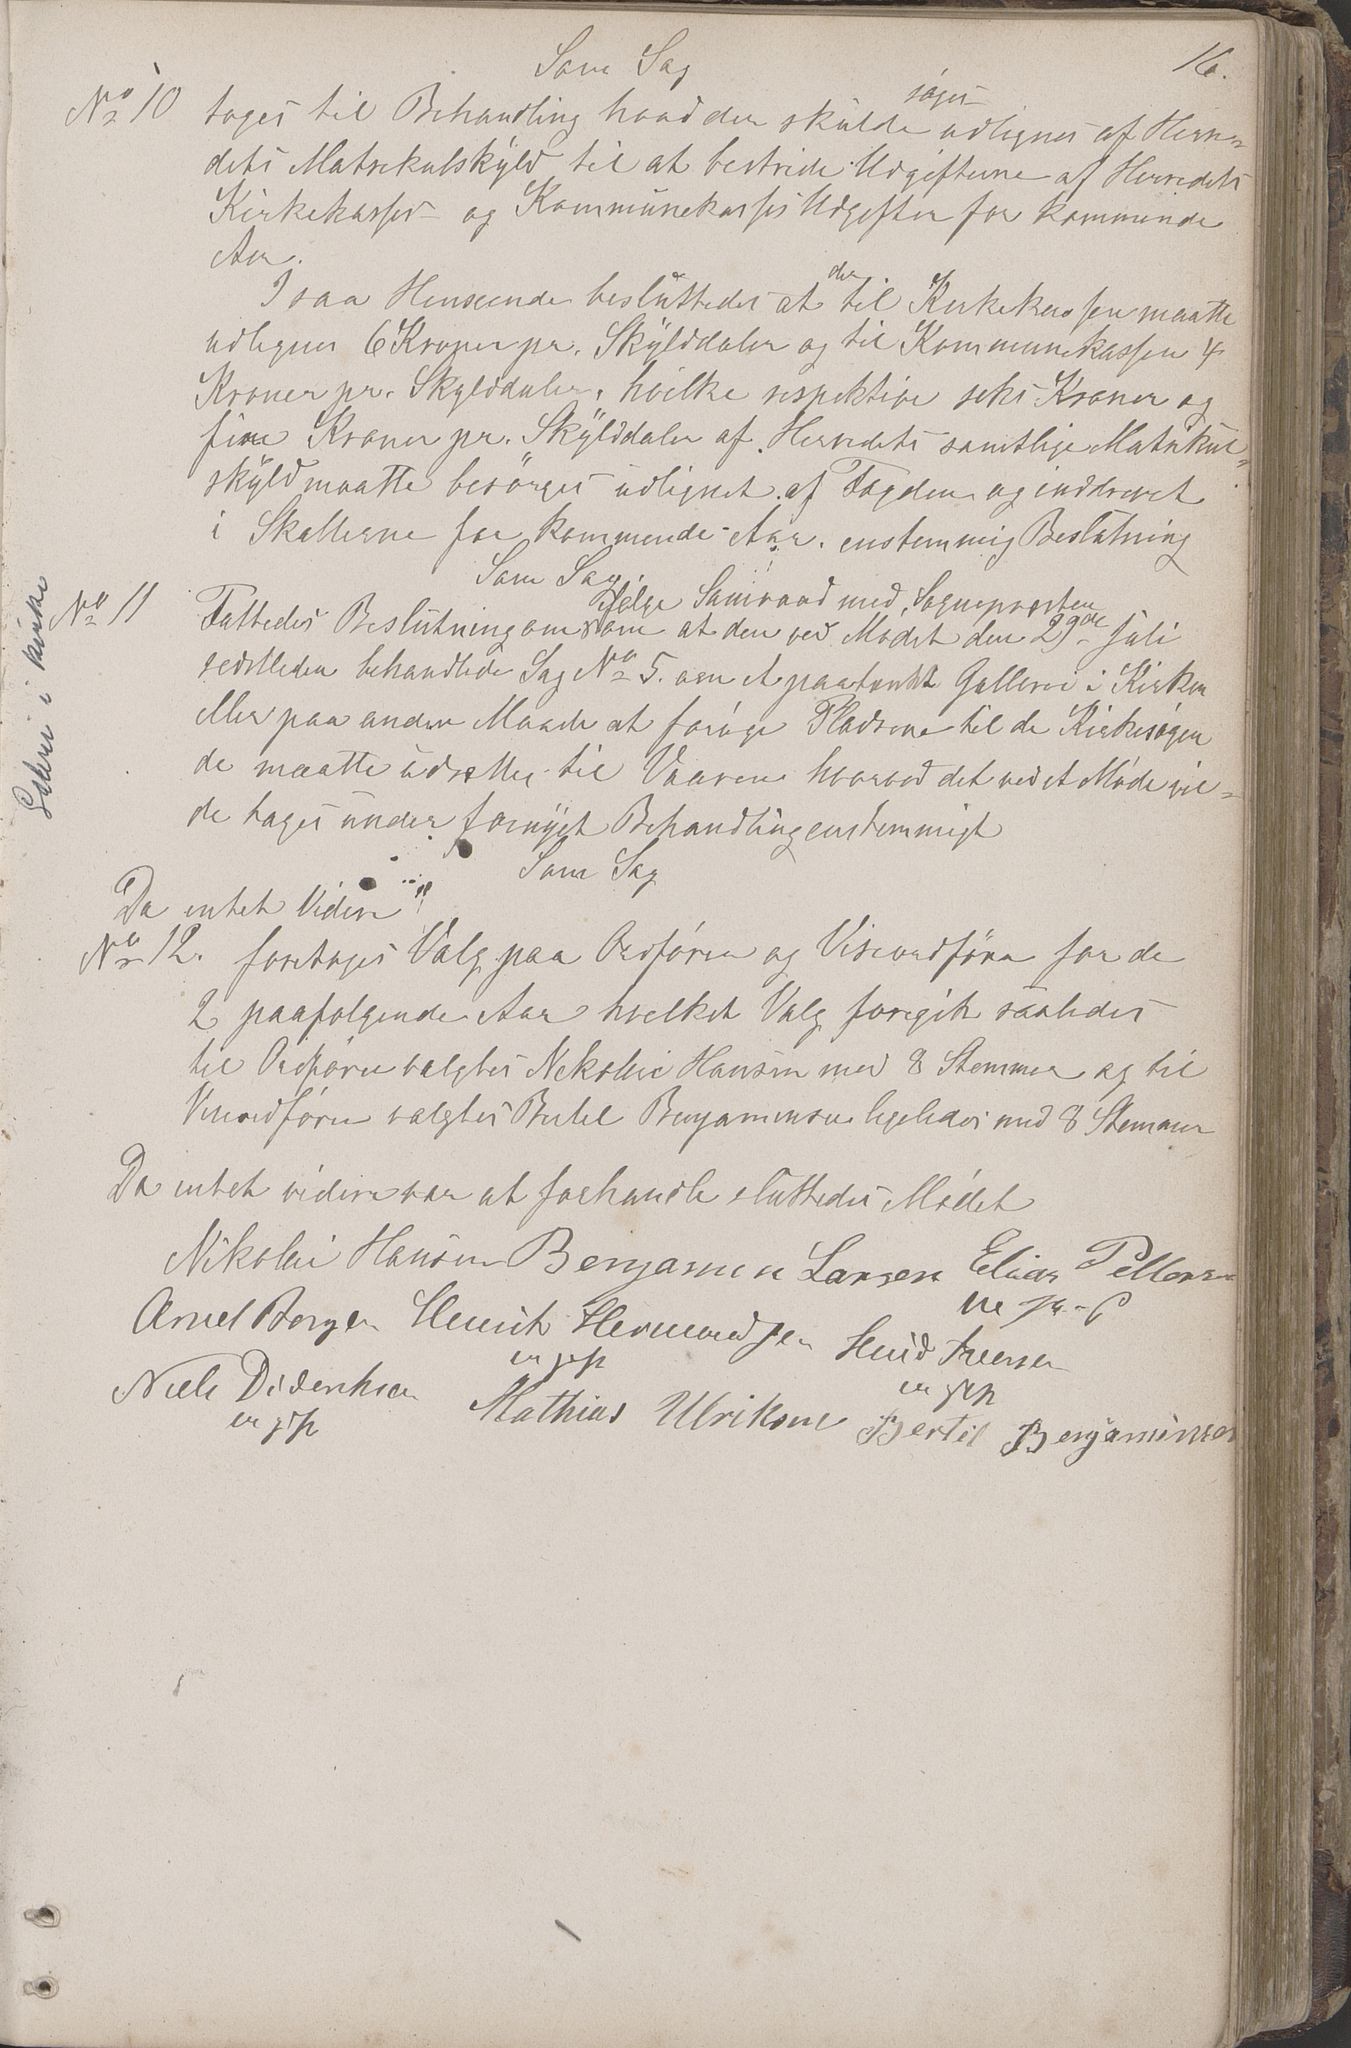 16.
Som Sag
No 10 toges til Behandling hvad der skulde søges udlignes af Herre-
dets Matrekulskyld til at bestride Udgifterne af Herredets
Kirkekasses og Kommunekasses Udgifter for kommende
Aar.
I saa Henseende besluttedes at der til Kirkekassen maatte
udlignes 6 Kroner pr. Skylddaler og til Kommunekassen 4
Kroner pr. Skylddaler, hvilke respektive seks Kroner og
fire Kroner pr. Skylddaler af Herredets samtlige Matrikul-
skyld maatte besørges udlignet af Fogden og inddrevet
i Skatterne for kommende Aar. enstemmig Beslutning
Som Sag
No 11 Fattedes Beslutning om som ifølge Samraad med Sognepresten at den ved Mødet den 29de Juli
sidstleden behandlede Sag No 5. om et paatænkt Galleri i Kirken
eller paa anden Maade at forøge Pladsene til de Kirkesøgen
de maatte udsættes til Vaaren hvorved det ved et Møde vil-
de tages under fornyet Behandling enstemmigt
Galeri i kirke
Som Sag
Da intet Videre
No 12. foretoges Valg paa Ordfører og Viseordfører for de
2 paafølgende Aar hvelket Valg foregik saaledes
til Ordfører valgtes Nekolai Hansen med 8 Stemmer og til
Viseordfører valgtes Bertel Benjaminsen ligeledes med 8 Stemmer
Da intet videre var at forhandle sluttedes Mødet
Nikolai Hansen Benjamin Larsen Elias Pettersen
Arnel Borgen Henrik Hermandsen
Niels Didriksen Mathias Ulriksen Bertil Benjaminsen